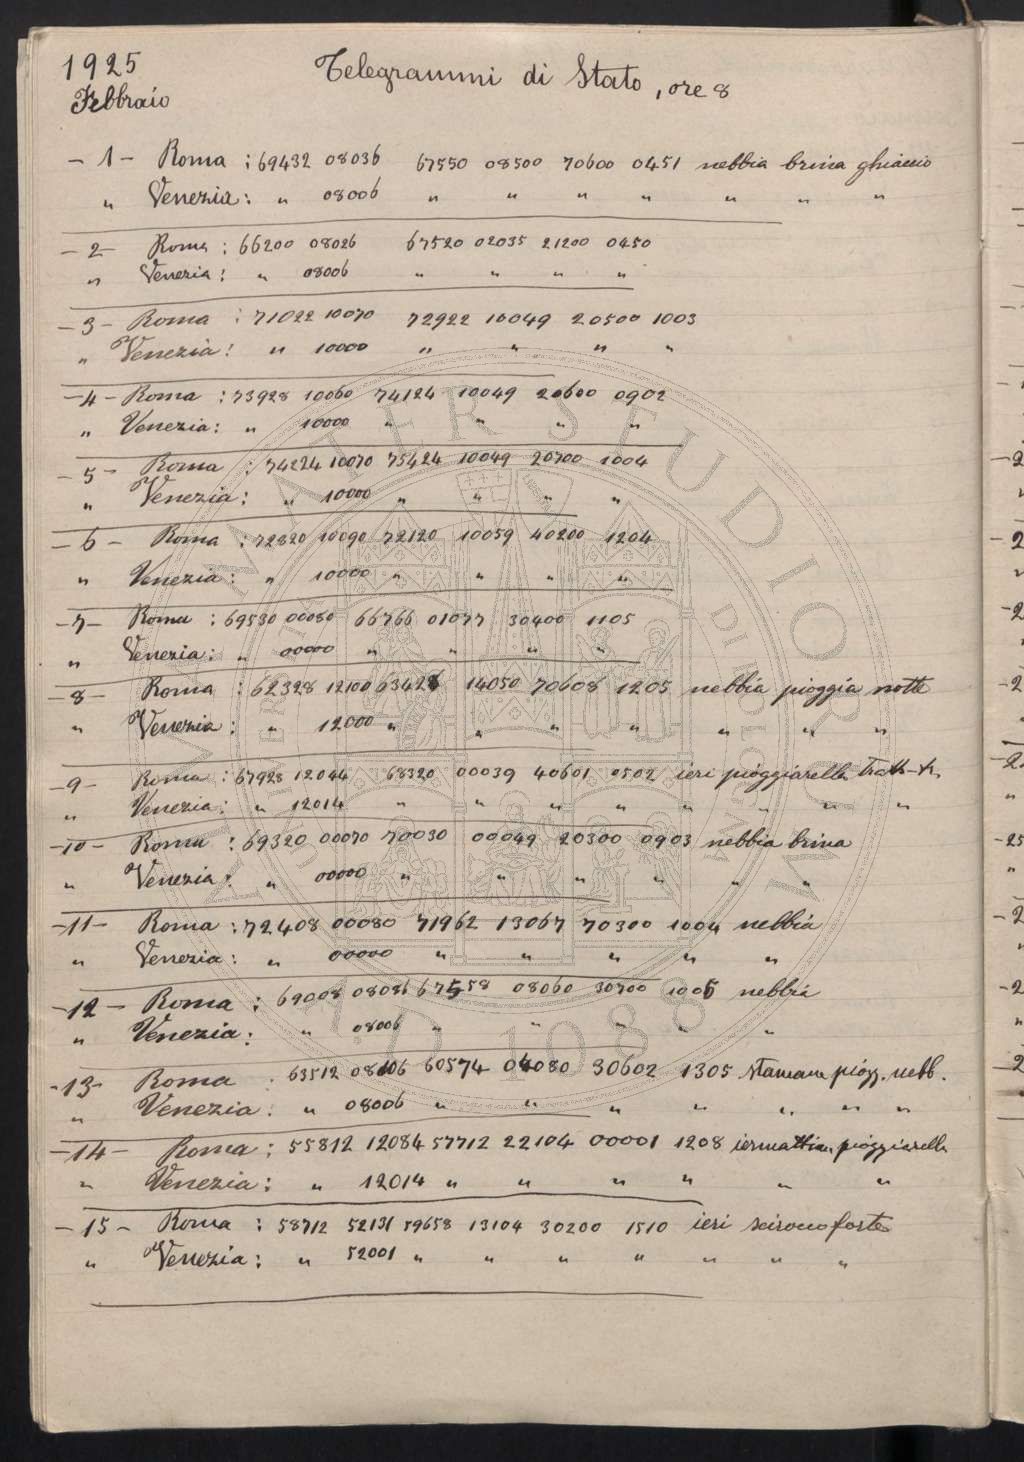 1925
Febbraio
Telegrammi di Stato, ore 8
- 1 - Roma : 69432 08036 67550 08500 70600 0451 nebbia brina ghiaccio
" Venezia : " 08006 " " " " " " "
- 2 - Roma : 66200 08026 67520 02035 21200 0450
" Venezia : " 08006 " " " "
- 3 - Roma : 71022 10070 72922 10049 20500 1003
" Venezia : " 10000 " " " "
- 4 - Roma : 73928 10060 74124 10049 20600 0902
" Venezia : " 10000 " " " "
- 5 - Roma : 74224 10070 75424 10049 20700 1004
" Venezia : " 10000 " " " "
- 6 - Roma : 72820 10090 72120 10059 40200 1204
" Venezia : " 10000 " " " "
- 7 - Roma : 69530 00080 66766 01077 30400 1105
" Venezia : " 00000 " " " "
- 8 - Roma : 62328 12100 63428 14050 70608 1205 nebbia pioggia notte
" Venezia : " 12000 " " " " " " "
- 9 - Roma : 67928 12044 68320 00039 40601 0502 ieri pioggiarella
" Venezia : " 12014 " " " " " " "
- 10 - Roma : 69320 00070 70030 00049 20300 0903 nebbia brina
" Venezia : " 00000 " " " " " "
- 11 - Roma : 72408 00080 71962 13067 70300 1004 nebbia
" Venezia : " 00000 " " " " "
- 12 - Roma : 69008 08086 67558 08060 30700 1005 nebbia
" Venezia : " 08006 " " " " "
- 13 - Roma : 63512 08106 60574 04080 30602 1305 stamane piogg. nebb.
" Venezia : " 08006 " " " " " " "
- 14 - Roma : 55812 12084 57712 22104 00001 1208 iermattina pioggiarella
" Venezia : " 12014 " " " " " "
- 15 - Roma : 58712 52131 59658 13104 30200 1510 ieri scirocco forte
" Venezia : " 52001 " " " " " " "
ALMA MATER STUDIORUM
A.D. 1088